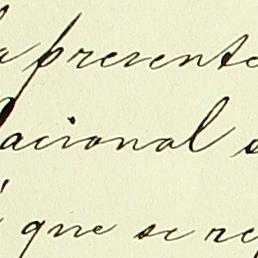 a presente
acional
que se re